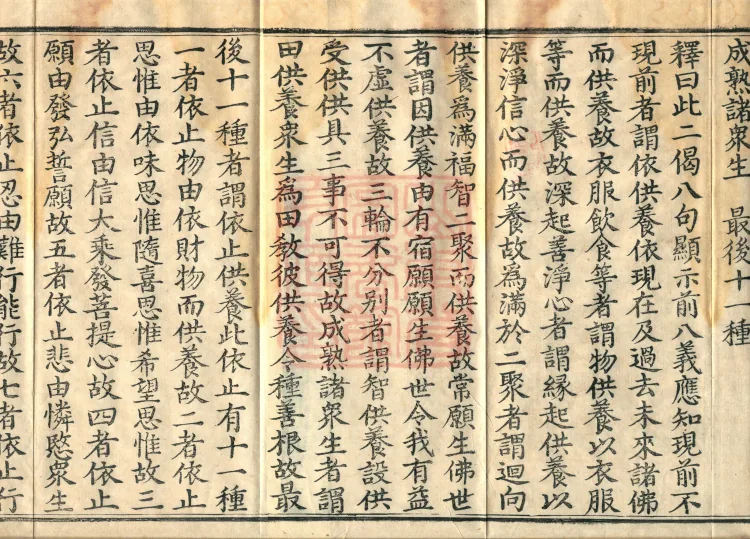 成熟諸衆生　最後十一種
釋曰此二偈八句顯示前八義應知現前不
現前者謂依供養依現在及過去未來諸佛
而供養故衣服飲食等者謂物供養以衣服
等而供養故深起善淨心者謂緣起供養以
深淨信心而供養故為滿於二聚者謂迴向
供養為滿福智二聚而供養故常願生佛世
者謂因供養由有宿願願生佛世令我有益
不虛供養故三輪不分別者謂智供養設供
受供供具三事不可得故成熟諸衆生者謂
田供養衆生為田教彼供養令種善根故最
後十一種者謂依止供養此依止有十一種
一者依止物由依財物而供養故二者依止
思惟由依味思惟隨喜思惟希望思惟故三
者依止信由信大乘發菩提心故四者依止
願由發弘誓願故五者依止悲由憐愍衆生
故六者依止忍由難行能行故七者依止行